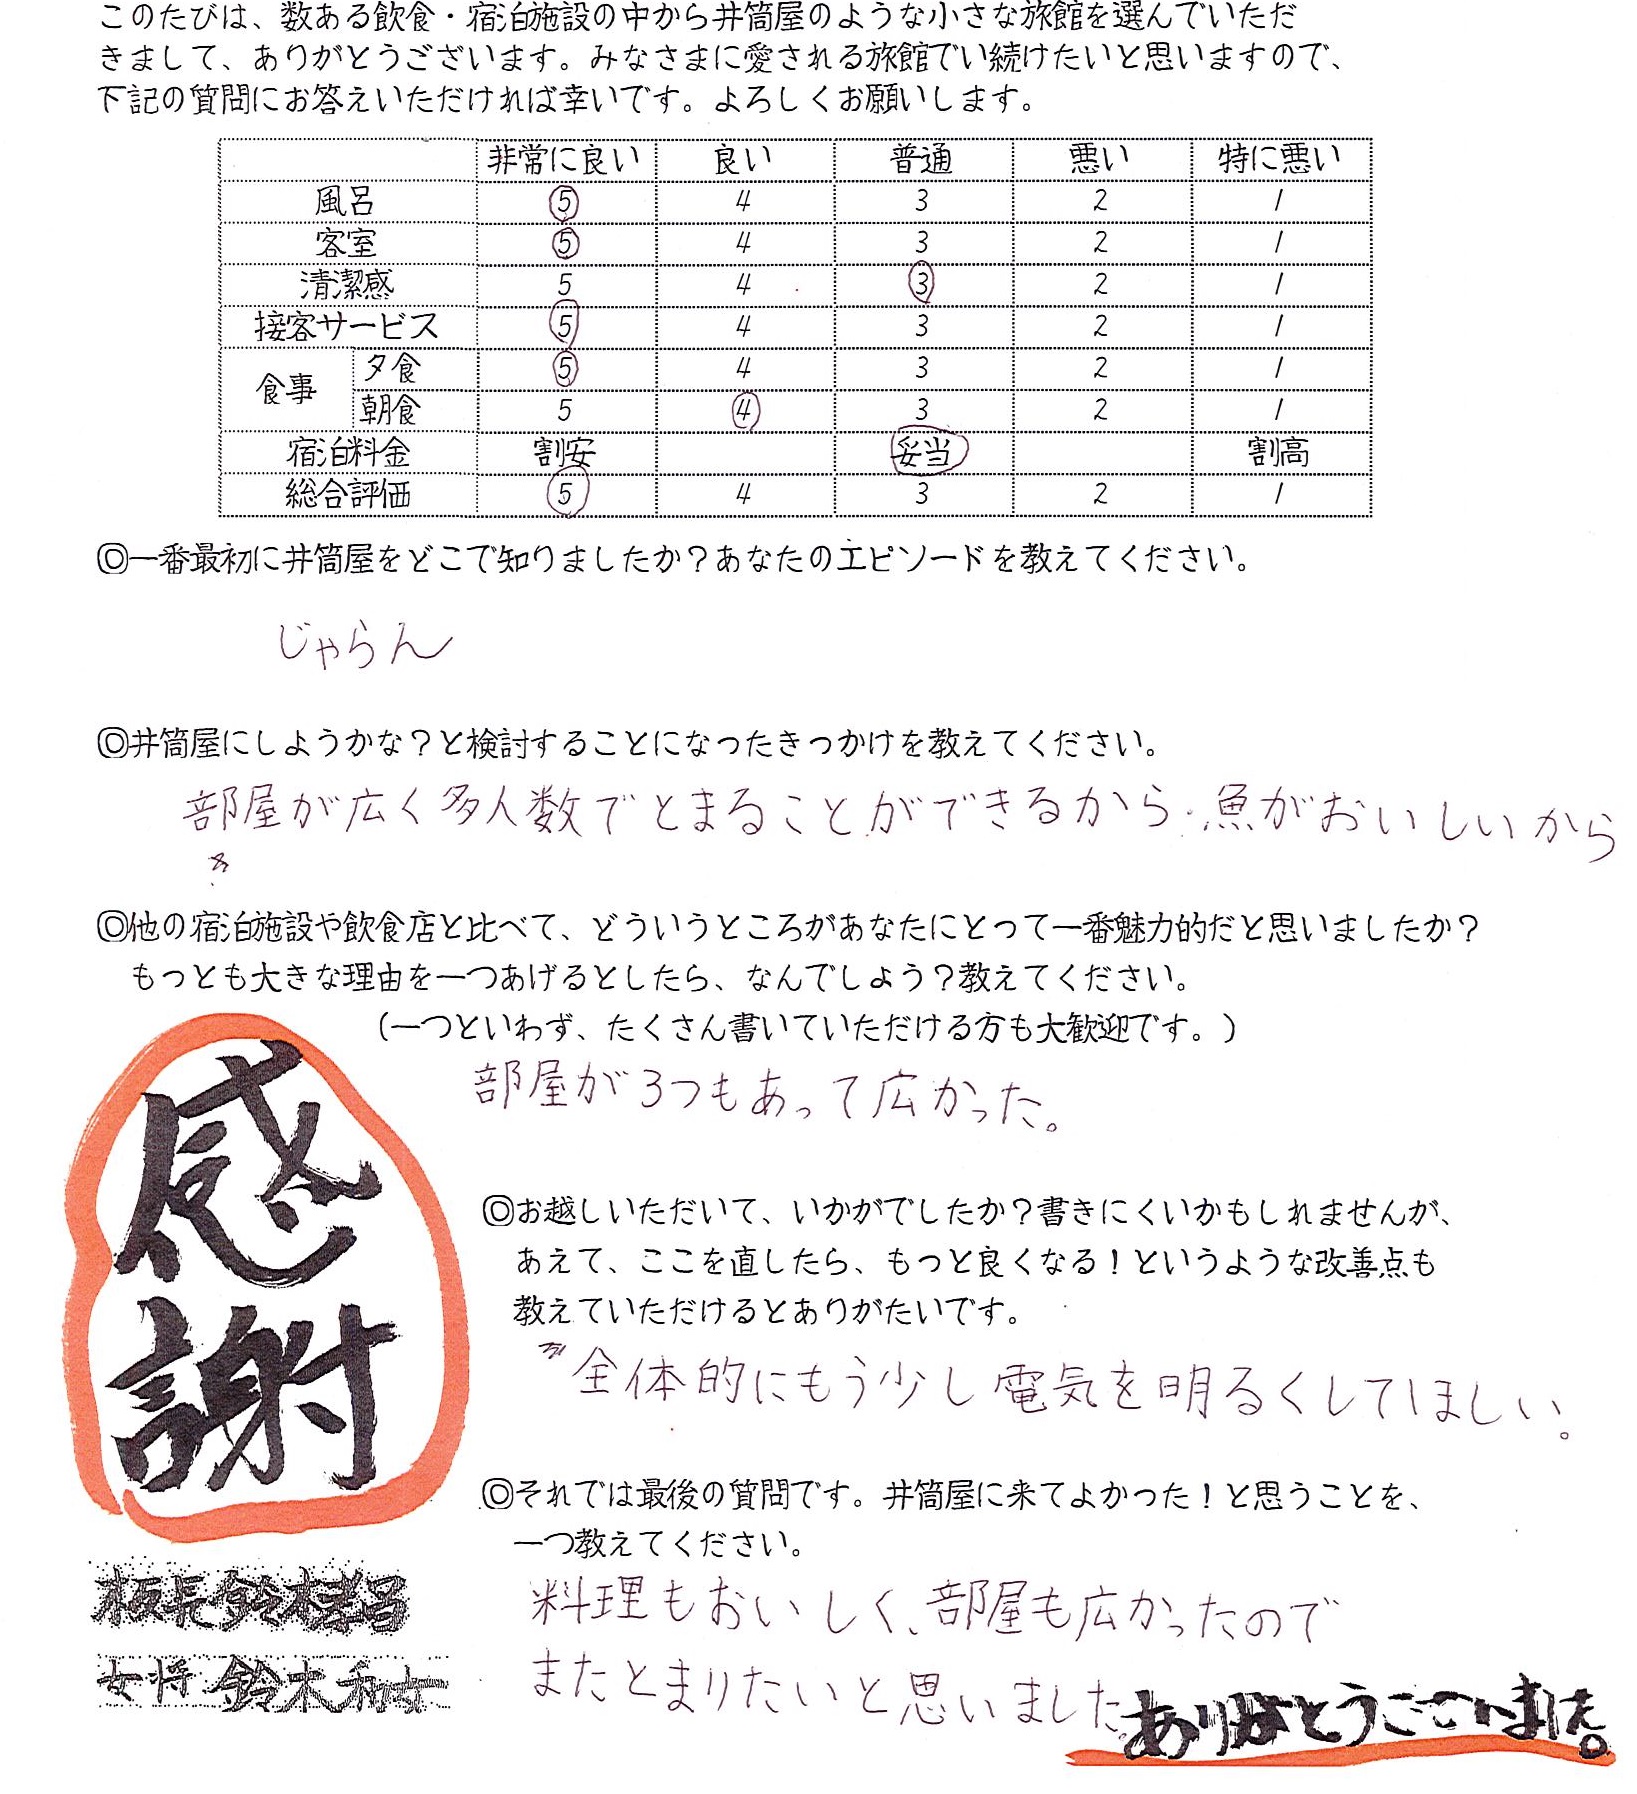 このたびは、数ある飲食・宿泊施設の中から井筒屋のような小さな旅館を選んでいただ
きまして、ありがとうございます。みなさまに愛される旅館でい続けたいと思いますので、
下記の質問にお答えいただければ幸いです。よろしくお願いします。
非常に良い 良い 普通 悪い 特に悪い
風呂 5 4 3 2 1
客室 5 4 3 2 1
清潔感 5 4 3 2 1
接客サービス 5 4 3 2 1
食事 夕食 5 4 3 2 1
朝食 5 4 3 2 1
宿泊料金 割安 妥当 割高
総合評価 5 4 3 2 1
◎一番最初に井筒屋をどこで知りましたか？あなたのエピソードを教えてください。
じゃらん
◎井筒屋にしようかな？と検討することになったきっかけを教えてください。
部屋が広く多人数でとまることができるから、魚がおいしいから
◎他の宿泊施設や飲食店と比べて、どういうところがあなたにとって一番魅力的だと思いましたか？
もっとも大きな理由を一つあげるとしたら、なんでしよう？教えてください。
（一つといわず、たくさん書いていただける方も大歓迎です。）
部屋が3つもあって広かった。
◎お越しいただいて、いかがでしたか？書きにくいかもしれませんが、
あえて、ここを直したら、もっと良くなる！というような改善点も
教えていただけるとありがたいです。
全体的にもう少し電気を明るくしてほしい。
◎それでは最後の質問です。井筒屋に来てよかった！と思うことを、
一つ教えてください。
料理もおいしく、部屋も広かったので
またとまりたいと思いました。
感謝
板長 鈴木
女将 鈴木和女
ありがとうございました。